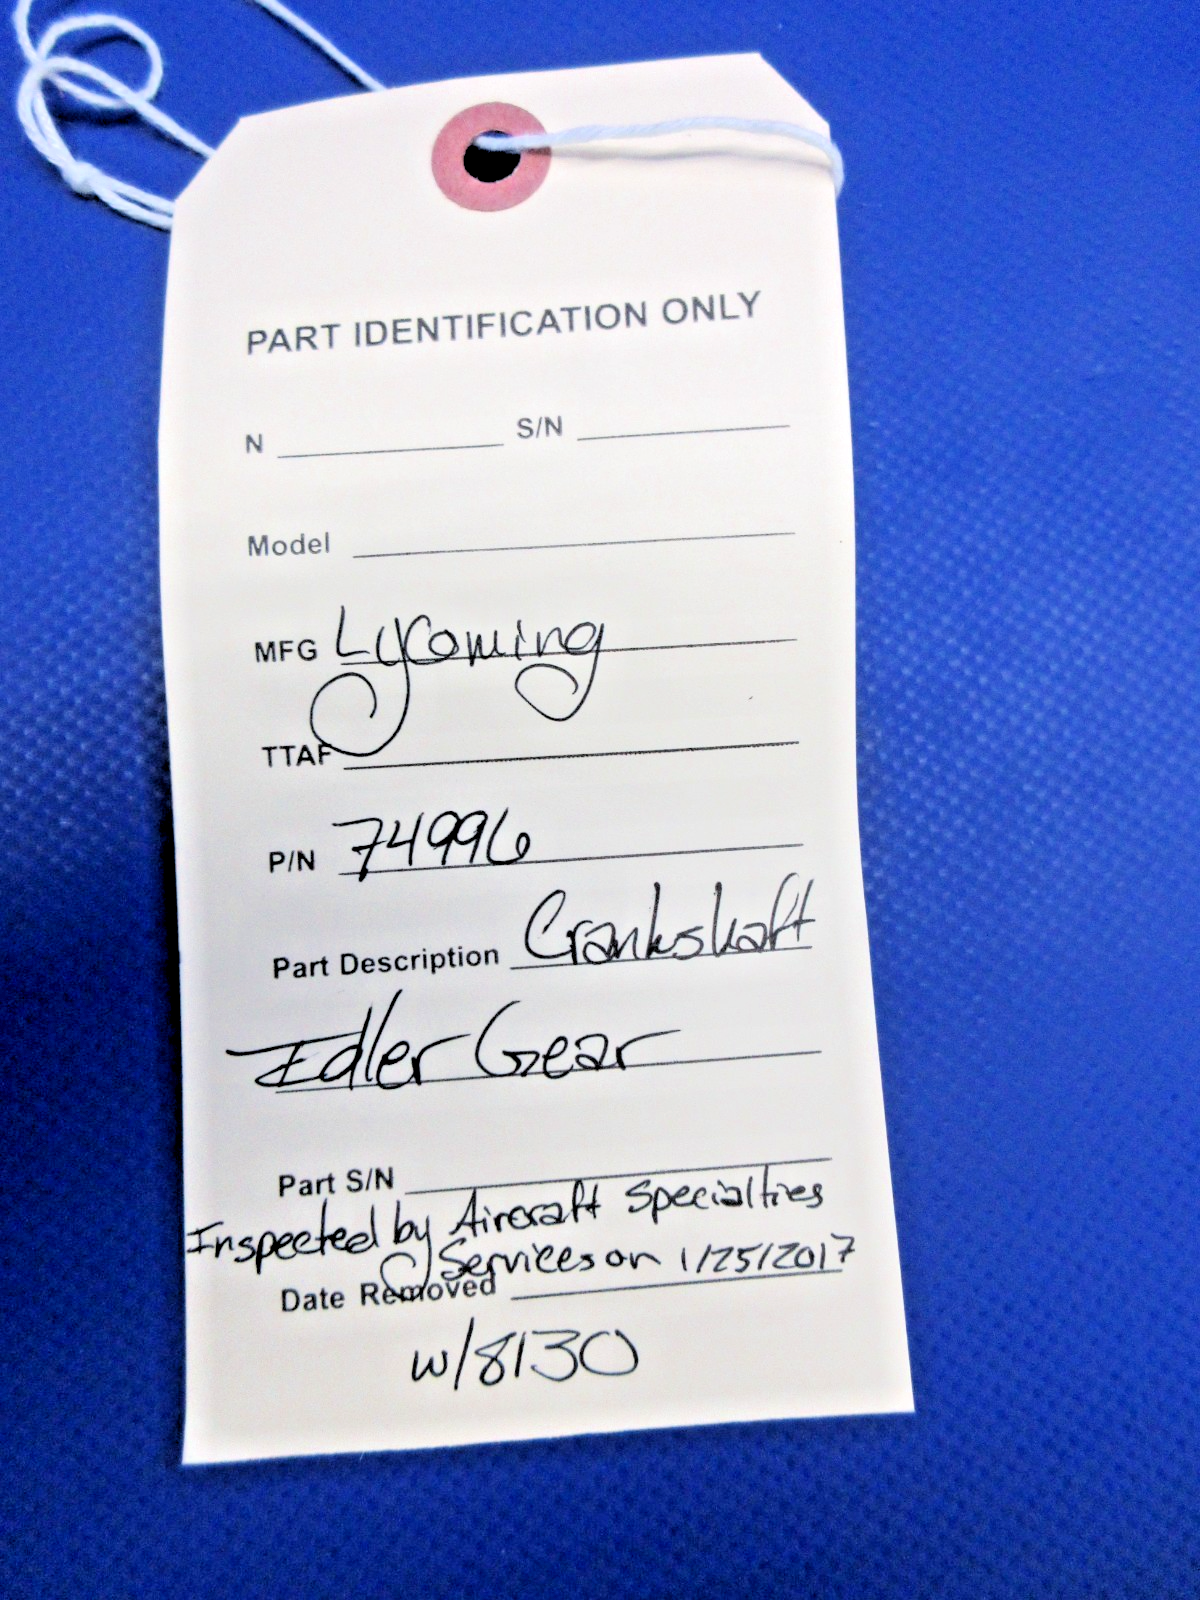 PART IDENTIFICATION ONLY
N S/N
Model
MFG Lycoming
TTAF
P/N 74996
Part Description Crankshaft
Idler Gear
Part S/N
Inspected by Aircraft Specialties
Services on 1/25/2017
Date Removed
w/8130